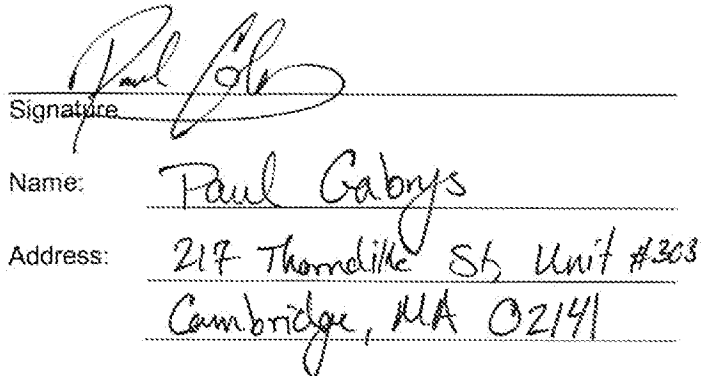 Paul Gabrys
Signature
Name: Paul Gabrys
Address: 217 Thorndike St, Unit #303
Cambridge, MA 02141